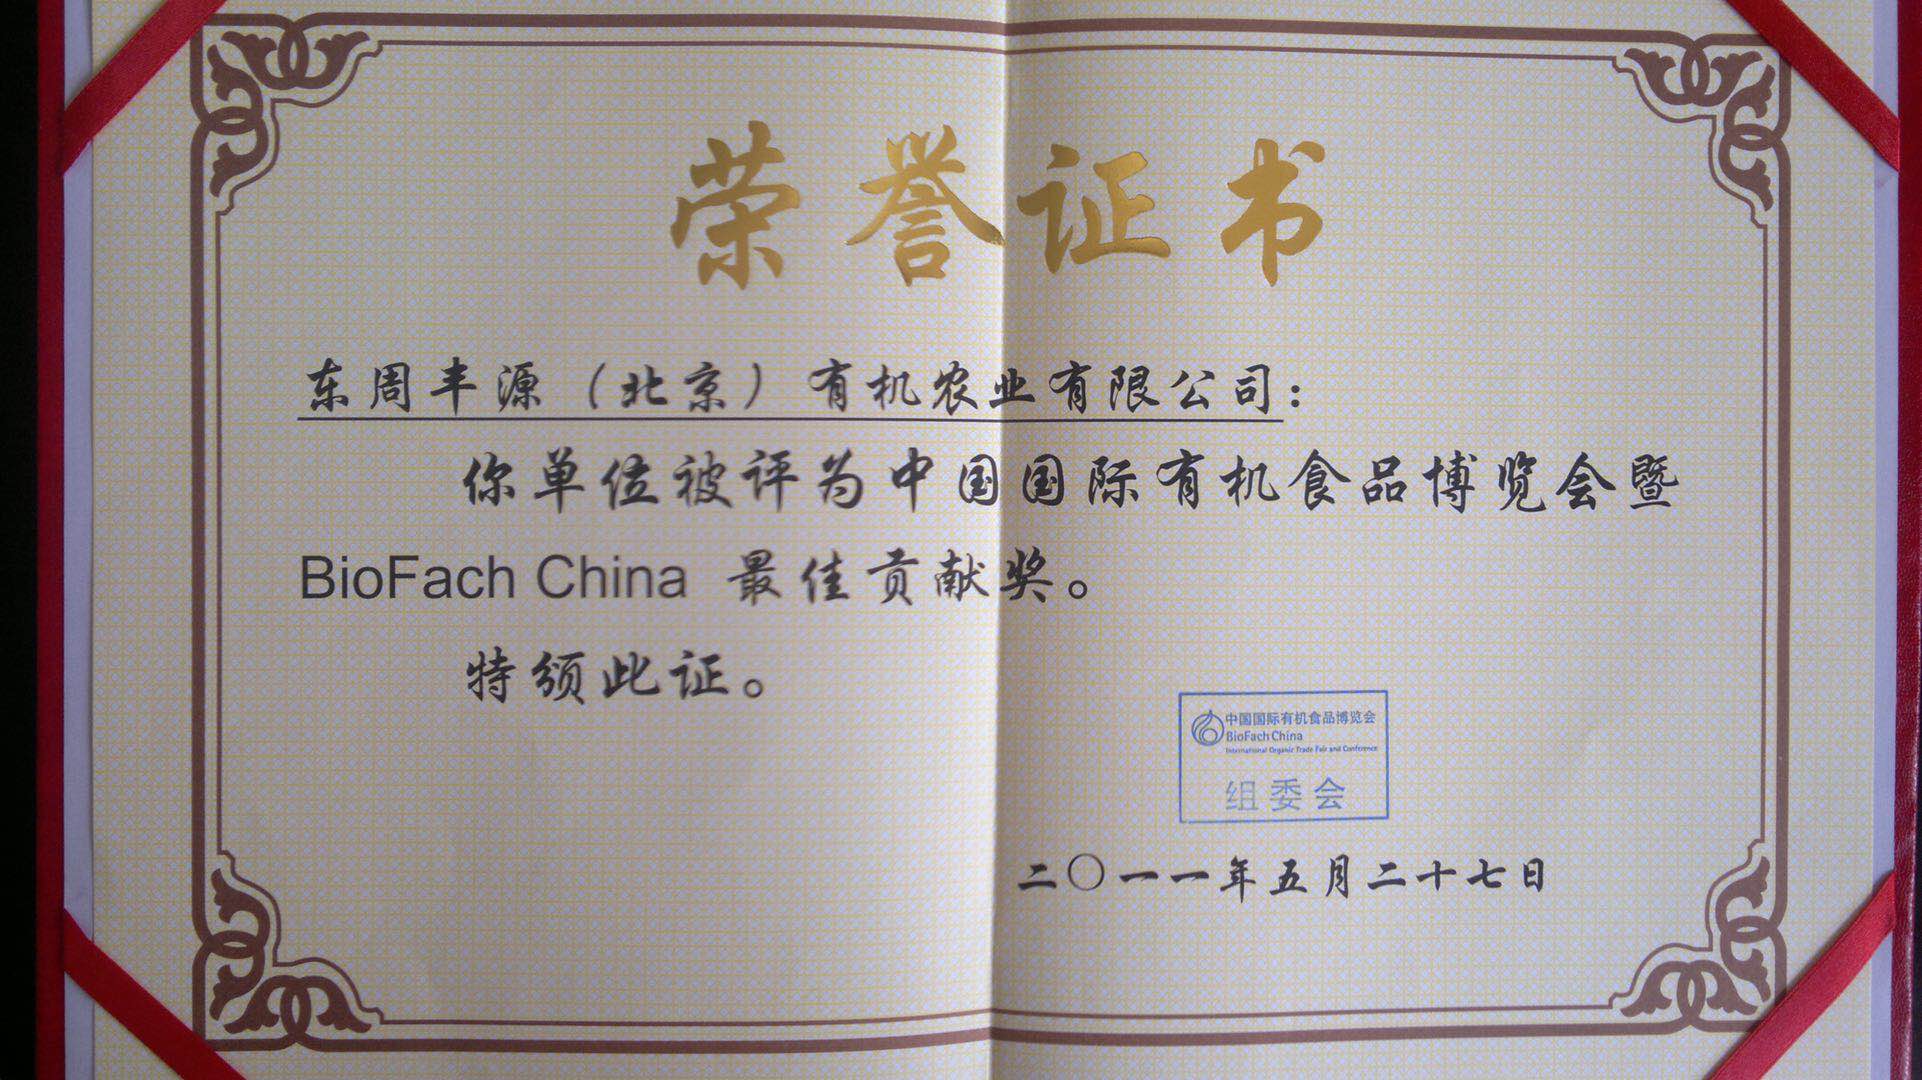 荣誉证书
东周丰源（北京）有机农业有限公司：
你单位被评为中国国际有机食品博览会暨
BioFach China 最佳贡献奖。
特颁此证。
中国国际有机食品博览会
BioFach China
International Organic Trade Fair and Conference
组委会
二〇一一年五月二十七日